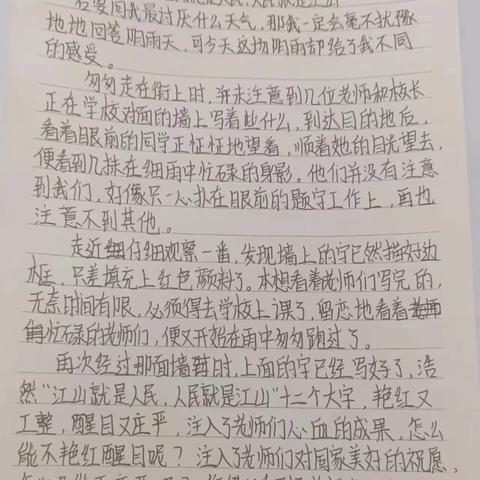 若要问我最讨厌什么天气，那我一定会毫不犹豫
地地回答阴雨天，可今天这场阴雨却给了我不同
的感受。
匆匆走在街上时，并未注意到几位老师和校长
正在学校对面的墙上写着些什么，到达目的地后，
看着眼前的同学正怔怔地望着，顺着她的目光望去，
便看到几抹在细雨中忙碌的身影。他们并没有注意
到我们，好像只一心扑在眼前的题字工作上，再也
注意不到其他。
走近仔细观察一番，发现墙上的字已然描好边
框，只差填充上红色颜料了。本想看着老师们写完的，
无奈时间有限，必须得去学校上课了，留恋地看着
忙碌的老师们，便又开始在雨中匆匆跑过了。
再次经过那面墙时，上面的字已经写好了，浩
然“江山就是人民，人民就是江山”十二个大字，艳红又
工整，醒目又庄严，注入了老师们心血的成果，怎么
能不艳红醒目呢？注入了老师们对国家美好的祝愿，